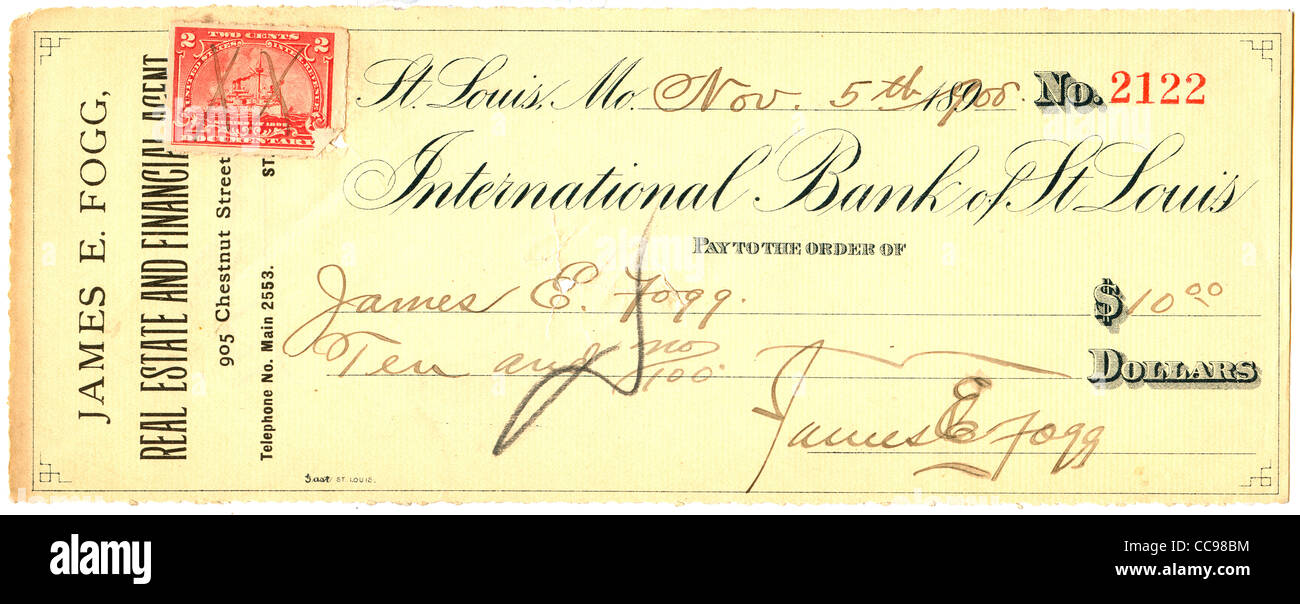 JAMES E. FOGG,
REAL ESTATE AND FINANCIAL AGENT
905 Chestnut Street
Telephone No. Main 2553.
ST.
2 TWO CENTS 2
UNITED STATES INTER REVENUE
DOCUMENTARY
St. Louis, Mo. Nov. 5th 1900. No. 2122
International Bank of St Louis
PAY TO THE ORDER OF
James E. Fogg. $10 00
Ten and no/100. DOLLARS
James E Fogg
East ST. LOUIS.
alamy
Image ID: CC98BM
www.alamy.com